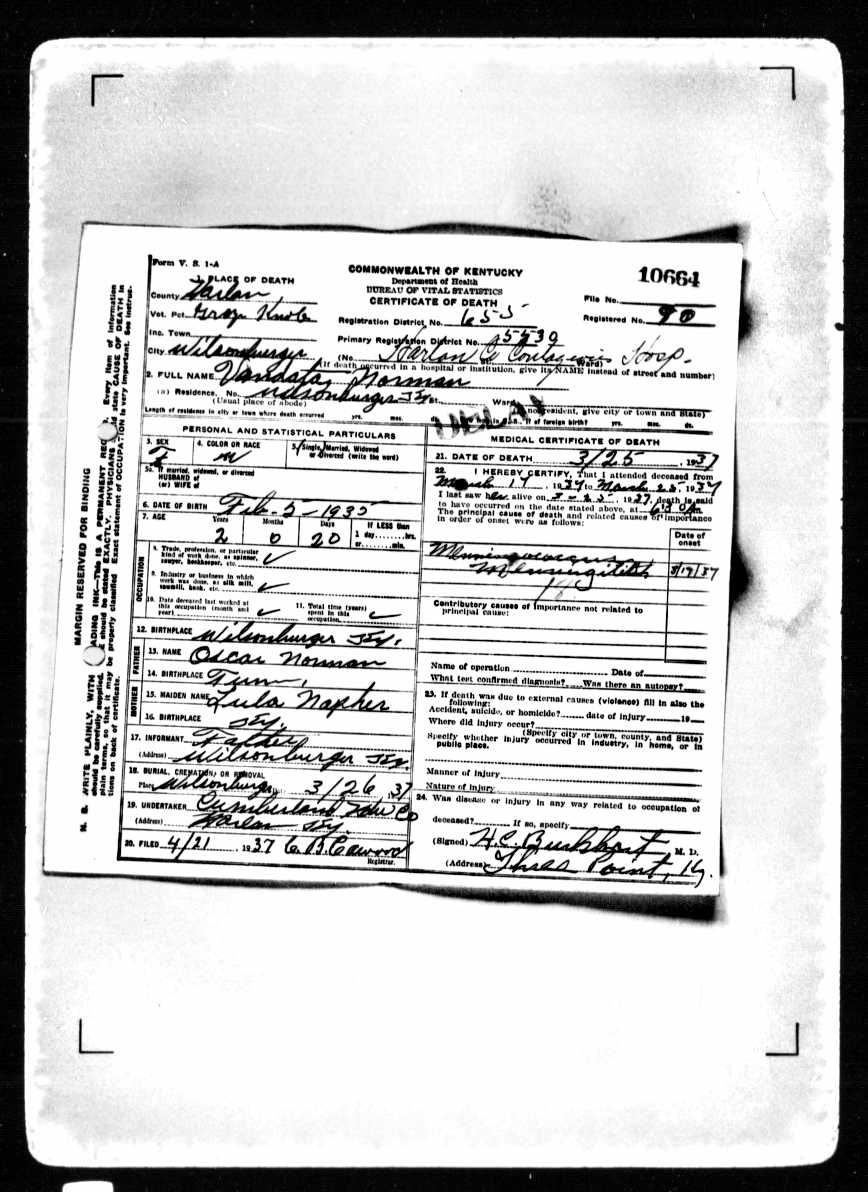 Form V. S. 1-A
COMMONWEALTH OF KENTUCKY
Department of Health
BUREAU OF VITAL STATISTICS
CERTIFICATE OF DEATH
10664
1. PLACE OF DEATH
County Harlan
Vot. Pct. Grays Knob
Inc. Town
City Wilsonburger
Registration District No. 655
Primary Registration District No. 5539
File No.
Registered No. 90
(No. Harlan Co Contagious Hosp. Ward)
(If death occurred in a hospital or institution, give its NAME instead of street and number)
2. FULL NAME Norman
(a) Residence. No. Wilsonburger Ky St. Ward
(Usual place of abode) (If nonresident, give city or town and State)
Length of residence in city or town where death occurred yrs. mos. ds. If of foreign birth? yrs. mos. ds.
PERSONAL AND STATISTICAL PARTICULARS
3. SEX F
4. COLOR OR RACE
5. Single, Married, Widowed or Divorced (write the word)
5a. If married, widowed, or divorced
HUSBAND of
(or) WIFE of
6. DATE OF BIRTH Feb-5-1935
7. AGE Years Months Days If LESS than
2 0 20 1 day hrs.
or min.
OCCUPATION
8. Trade, profession, or particular
kind of work done, as spinner,
sawyer, bookkeeper, etc.
9. Industry or business in which
work was done, as silk mill,
sawmill, bank, etc.
10. Date deceased last worked at
this occupation (month and
year)
11. Total time (years)
spent in this
occupation
12. BIRTHPLACE Wilsonburger Ky.
FATHER
13. NAME Oscar Norman
14. BIRTHPLACE Tenn.
MOTHER
15. MAIDEN NAME Lula Napher
16. BIRTHPLACE Ky.
17. INFORMANT Father
(Address) Wilsonburger Ky.
18. BURIAL, CREMATION, OR REMOVAL
Place Wilsonburg 3/26, 37
19. UNDERTAKER Cumberland Co
(Address) Harlan Ky.
20. FILED 4/21, 1937 C. B. Cawood
Registrar.
MEDICAL CERTIFICATE OF DEATH
21. DATE OF DEATH 3/25, 1937
22. I HEREBY CERTIFY, That I attended deceased from
March 19, 1937 to March 25, 1937
I last saw her alive on 3-25, 1937, death is said
to have occurred on the date stated above, at 6:30 m.
The principal cause of death and related causes of importance
in order of onset were as follows:
Date of
onset
Meningococcus
Meningitis 3/19/37
18
Contributory causes of importance not related to
principal cause:
Name of operation Date of
What test confirmed diagnosis? Was there an autopsy?
23. If death was due to external causes (violence) fill in also the
following:
Accident, suicide, or homicide? date of injury 19
Where did injury occur?
(Specify city or town, county, and State)
Specify whether injury occurred in industry, in home, or in
public place.
Manner of injury
Nature of injury
24. Was disease or injury in any way related to occupation of
deceased? If so, specify
(Signed) H. C. Burkhart M. D.
(Address) Three Point, Ky.
MARGIN RESERVED FOR BINDING